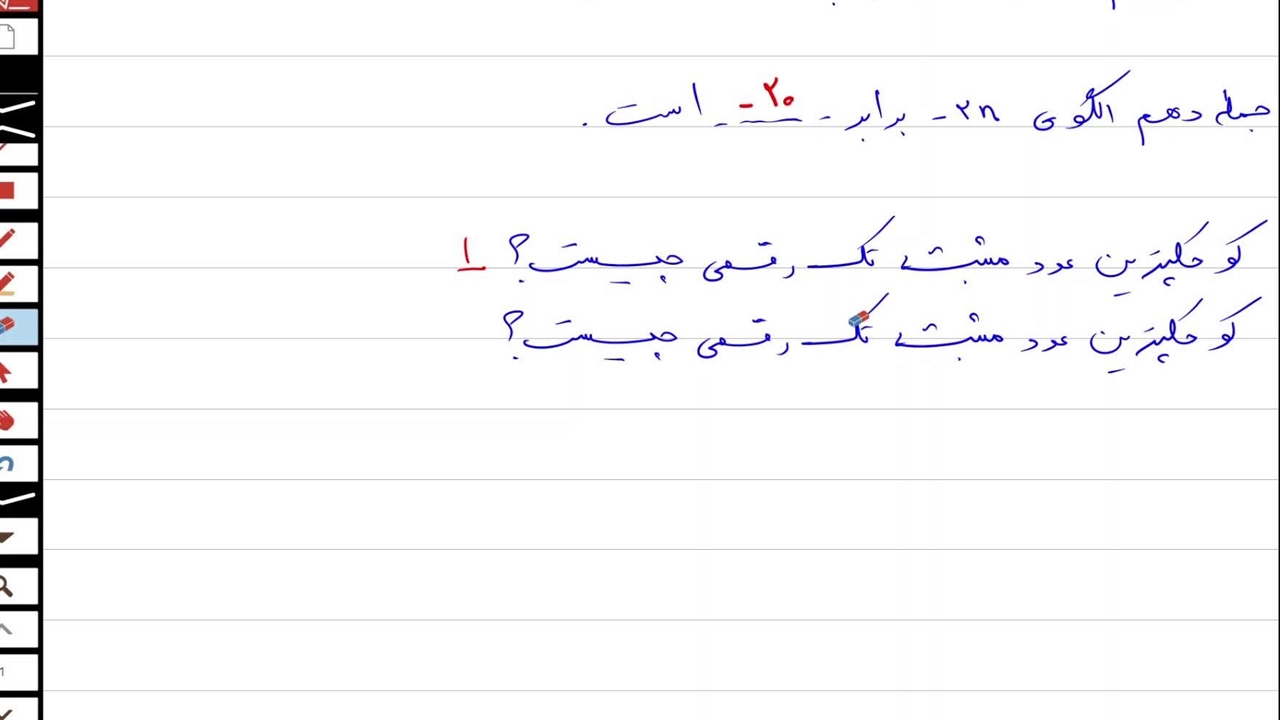 جمله دهم الگوی -۲n برابر -۲۰ است.
کوچکترین عدد مثبت تک رقمی چیست؟ ۱
کوچکترین عدد مثبت تک رقمی چیست؟